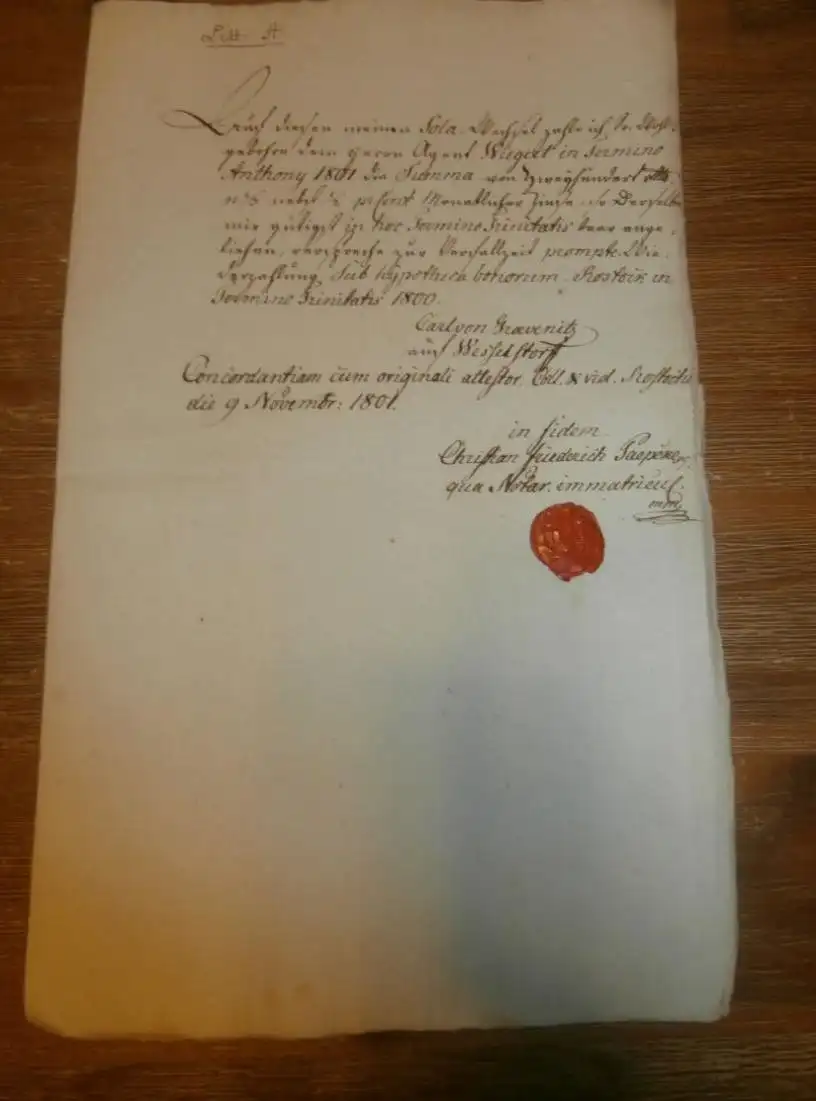 Litt. A
Auf diesen meinen Sola-Wechsel zahle ich Sr. Wohl-
gebohrn dem Herrn Agent Wiegert in termino
Anthony 1801 die Summa von Zweyhundert
nebst pCent Monatlicher Zinse so Derselbe
mir gütigst in hoc Termino Trinitatis baar ange-
liehen, verspreche zur Verfallzeit prompte Wie-
derzahlung sub hypotheca bonorum. Rostock in
Termino Trinitatis 1800.
Carl von Graevenitz
auf Wesselstorff
Concordantiam cum originali attestor. Coll. & vid. Rostochii
die 9 Novembr: 1801.
in fidem
Christian Friederich
qua Notar. immatricul.
mpp